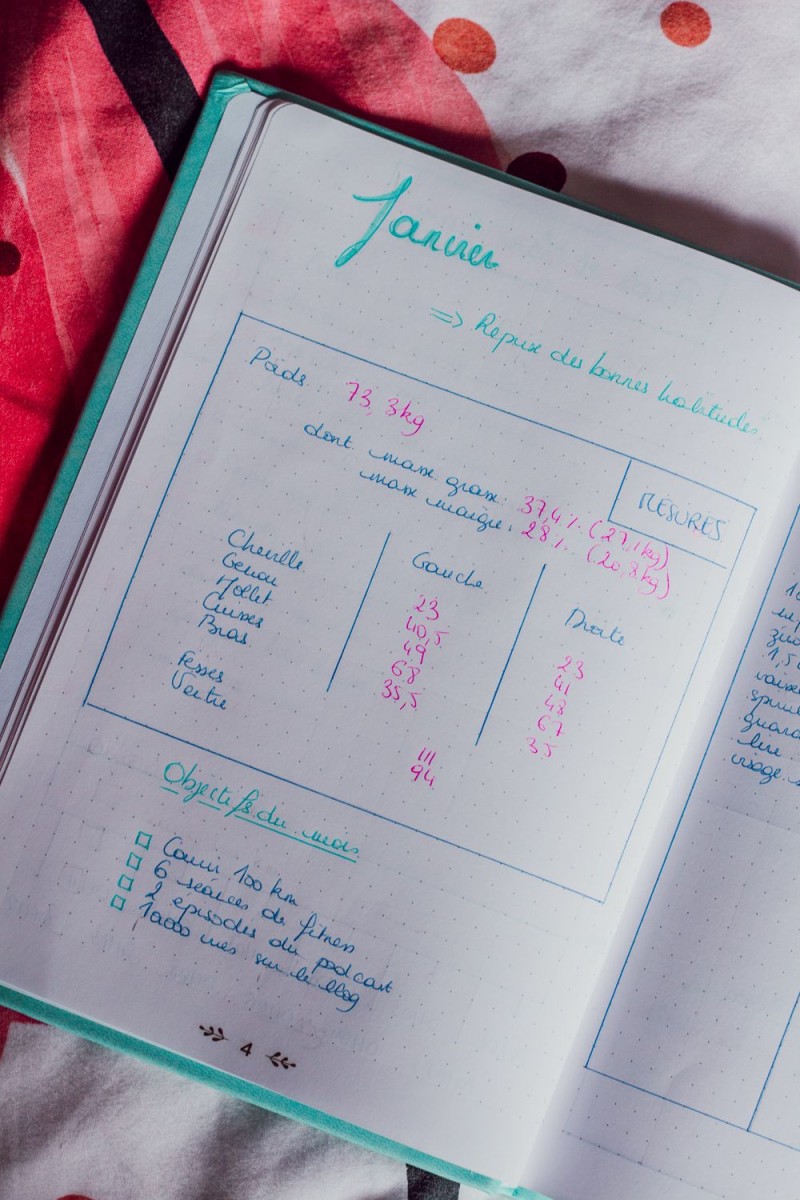 Janvier
=> Repux des bonnes habitudes
Poids 73,3kg
dont masse grasse: 37,4% (27,1kg)
masse maigre: 28% (20,8kg)
MESURES
Gauche Droite
Cheville 23 23
Genou 40,5 41
Mollet 49 48
Cuisses 68 67
Bras 35,5 35
Fesses 111
Ventre 94
Objectifs du mois
Courir 100 km
6 séances de fitness
2 épisodes du podcast
10000 vues sur le blog
4